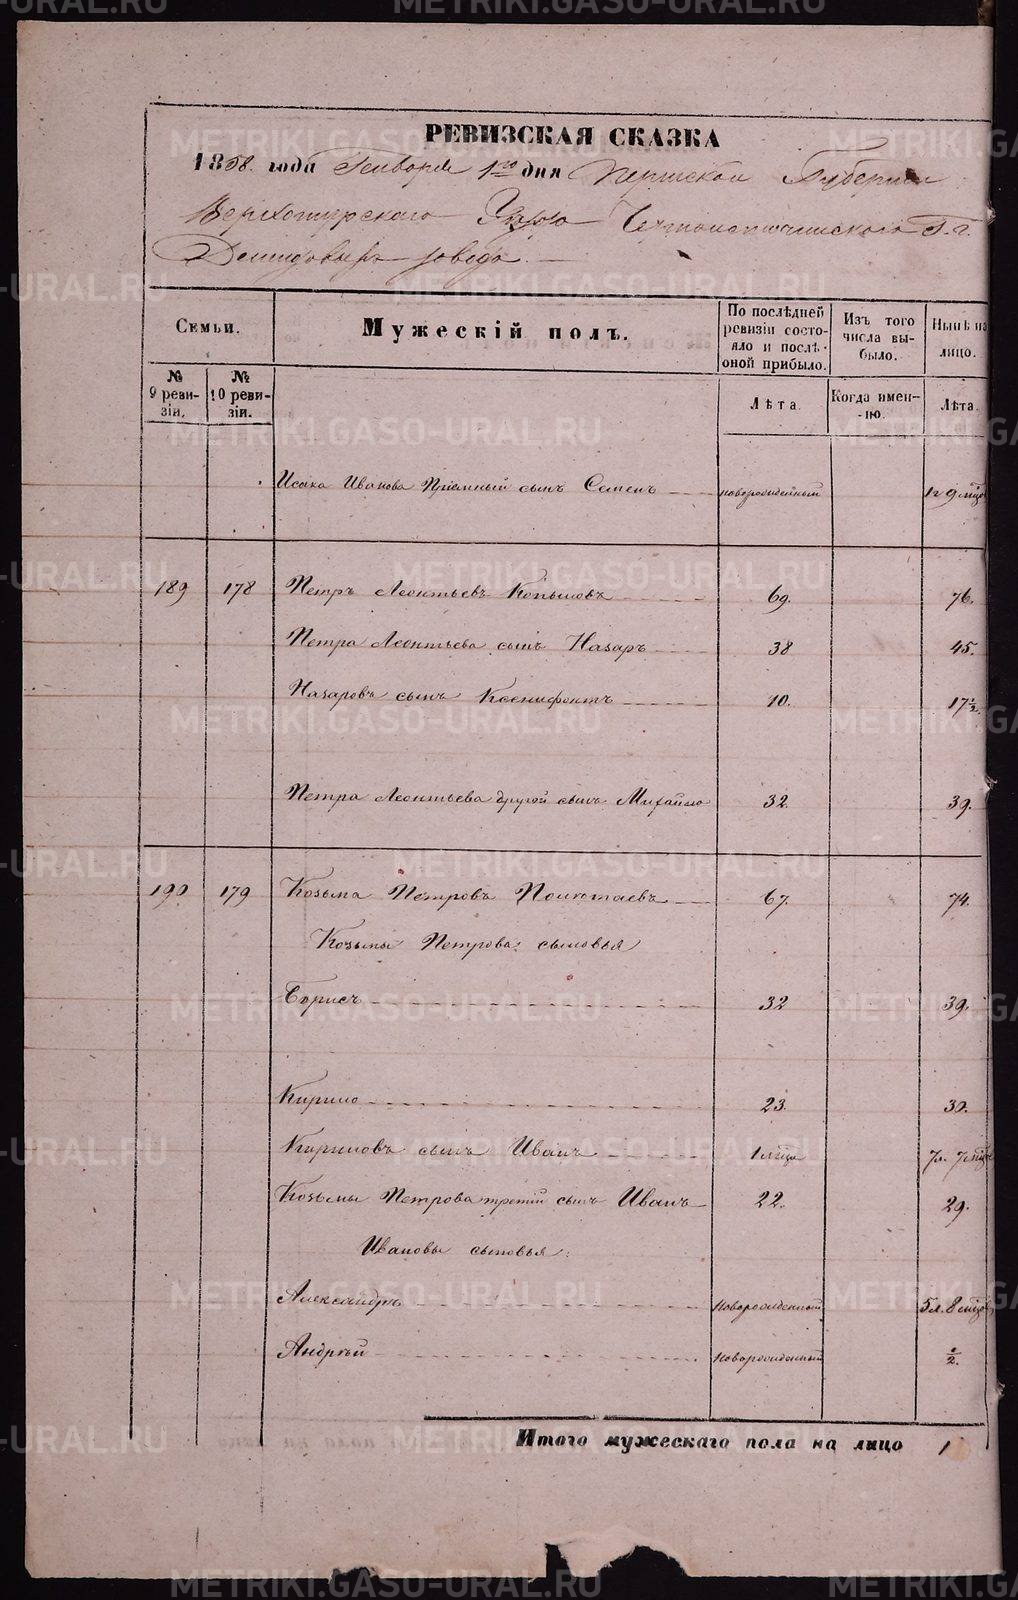 METRIKI.GASO-URAL.RU
РЕВИЗСКАЯ СКАЗКА
1858. года Генваря 1го дня Пермской Губернии
Верхотурскаго Уезда Черноисточинскаго Г. г.
Демидовыхъ завода.
Семьи. Мужескій полъ. По послѣдней ревизіи состояло и послѣ оной прибыло. Изъ того числа выбыло. Нынѣ на лицо.
№ 9 ревизіи. № 10 ревизіи. Лѣта. Когда именно. Лѣта.
Исака Иванова Пріемный сынъ Семенъ новорожденный 1г 9 мцов
189 178 Петръ Леонтьевъ Копыловъ 69. 76.
Петра Леонтьева сынъ Назаръ 38 45.
Назаровъ сынъ Ксенифонтъ 10. 17½.
Петра Леонтьева другой сынъ Михайло 32. 39.
190 179 Козьма Петровъ 67. 74.
Козьмы Петрова: сыновья
Борисъ 32 39.
Кирило 23. 30.
Кириловъ сынъ Иванъ 1 мцъ 7л. 7 мцов
Козьмы Петрова третій сынъ Иванъ 22. 29.
Ивановы сыновья:
Александръ новорожденный 5л. 8 мцов
Андрей новорожденный
Итого мужескаго пола на лицо 1